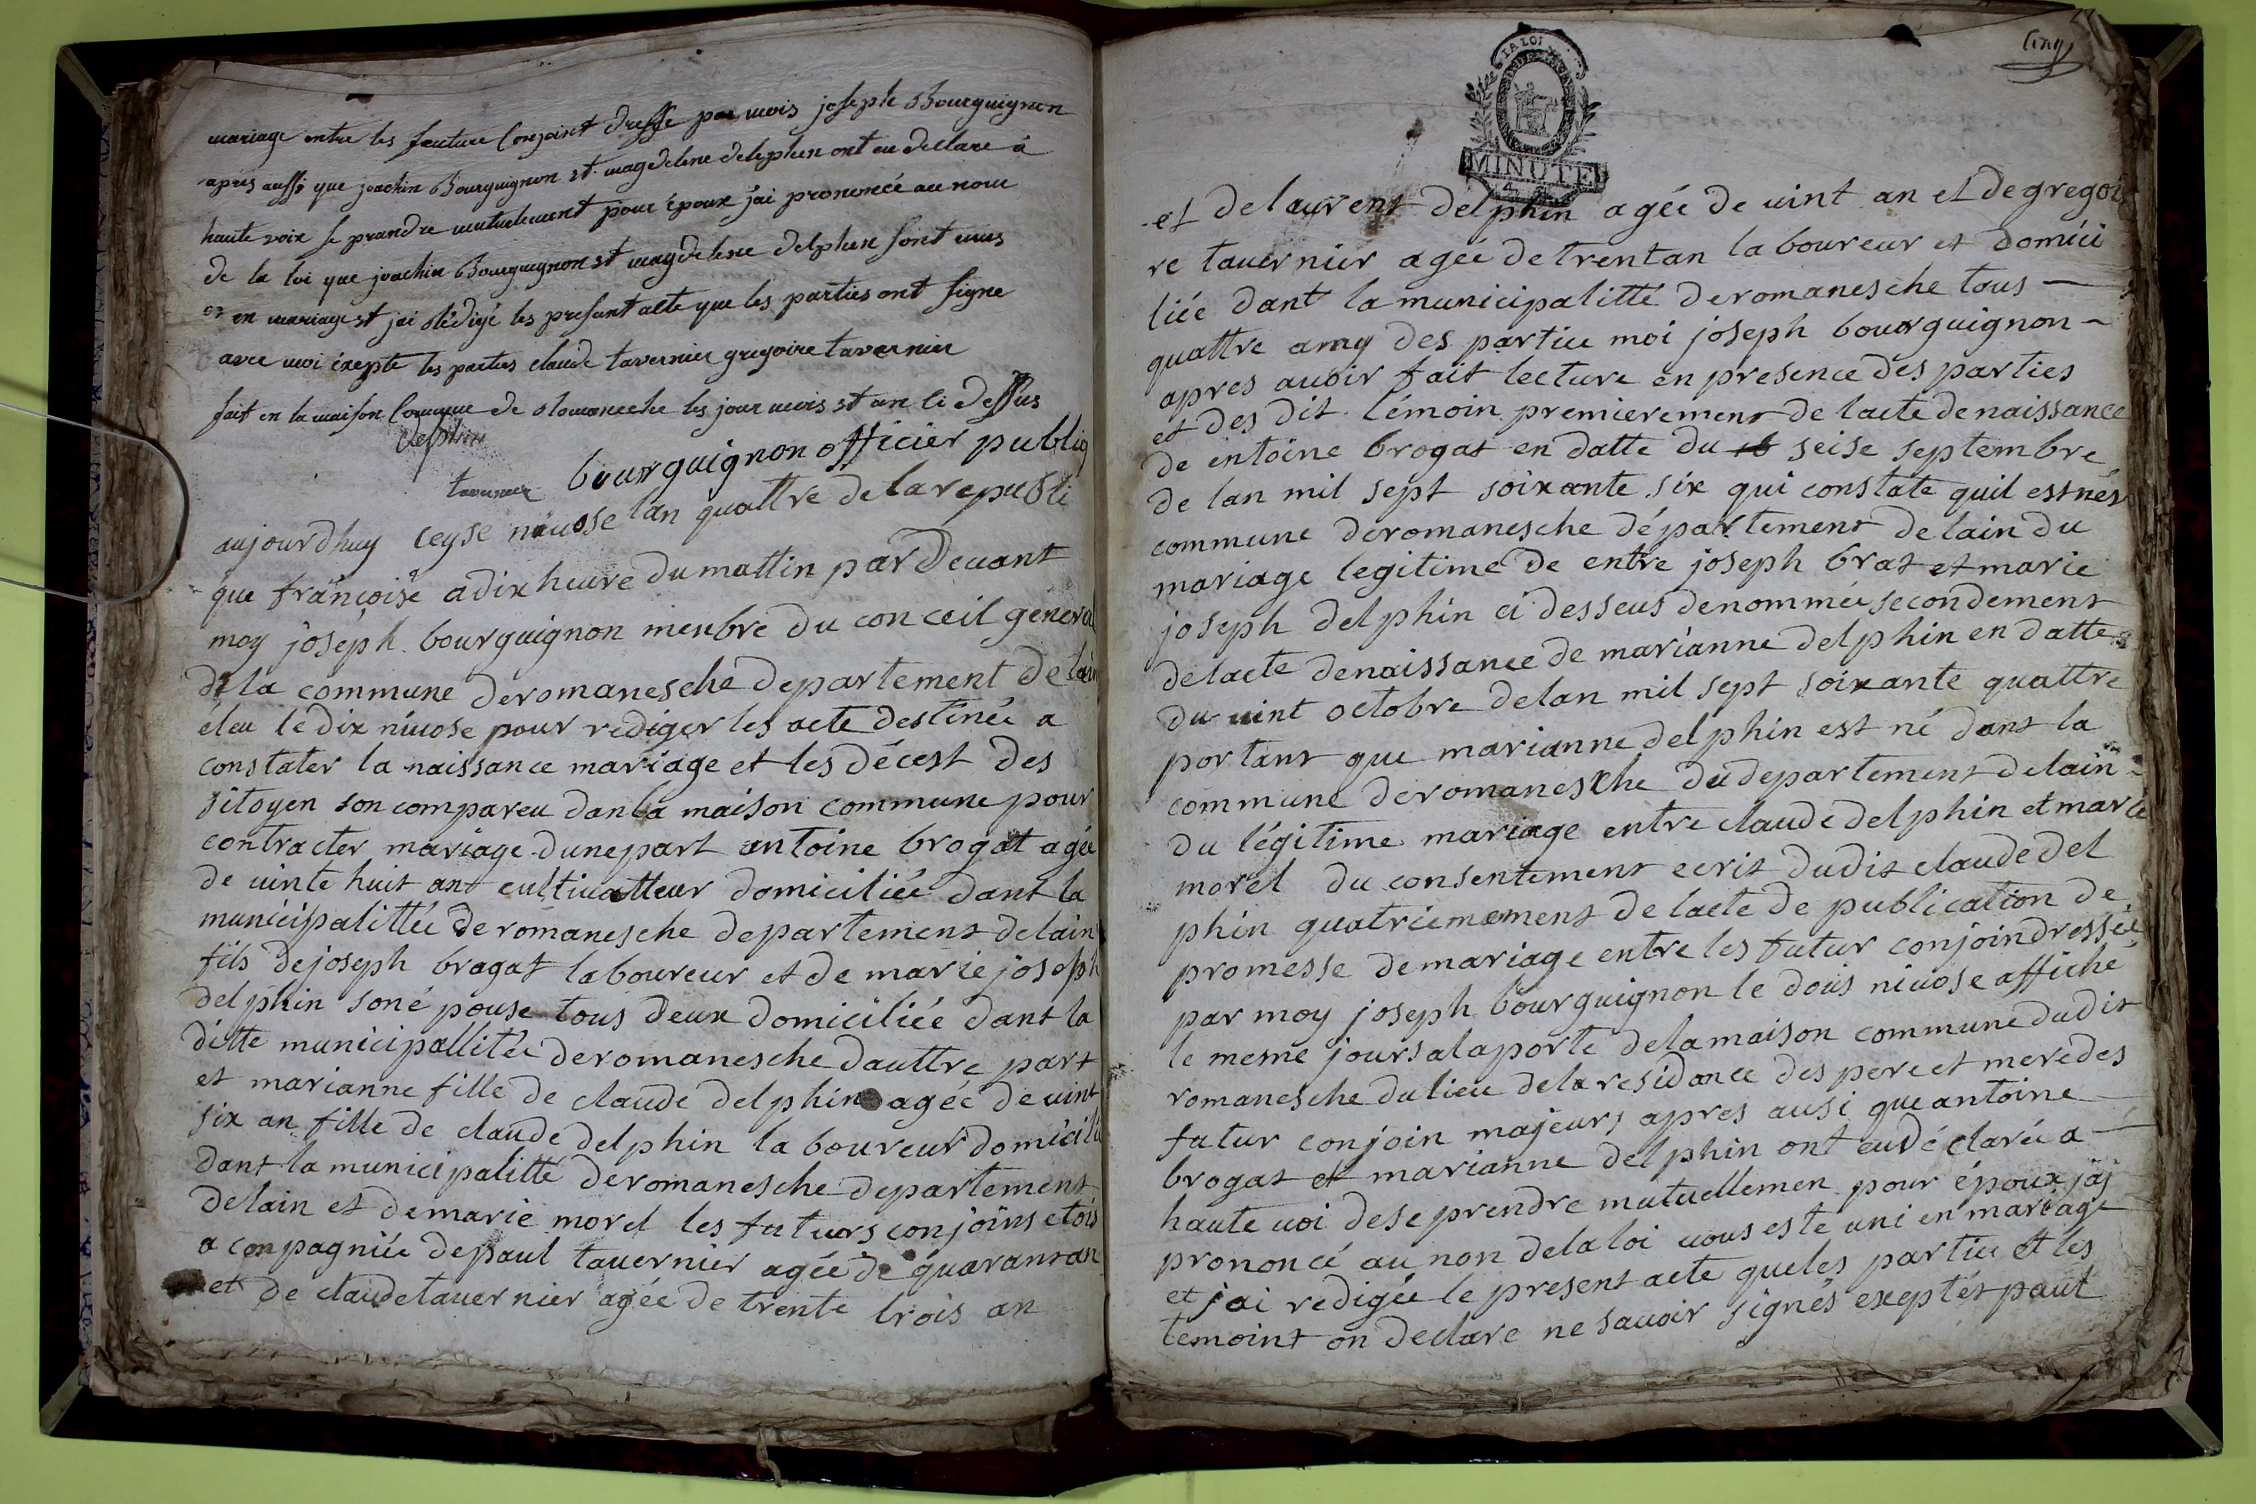 mariage entre les fauture Conjoint dresse par mois joseph Bourguignon
apres aussi que joachin Bourguignon et magdelene delephin ont eu declare à
haute voix se prandre mutuelement pour époux j'ai prononcée au nom
de la loi que joachin Bourguignon et magdelene delphin sont unis
en mariage et jai rédigé les presant acte que les parties ont signe
avec moi exepte les parties claude tavernier gregoire tavernier
fait en la maison Comune de Romaneche les jour mois et an ci dessus
delphin
bourguignon officier public
tavernier
aujourdhuy seyse nivose lan quattre de la republi
que françoise a dix heure du mattin par devant
moy joseph bourguignon menbre du conceil general
de la commune deromanesche departement de lain
éleu le dix nivose pour rediger les acte destinée a
constater la naissance mariage et les décest des
sitoyen son compareu dan la maison commune pour
contracter mariage dunepart antoine brogat agée
de uinte huit ant cultivatteur domiciliée dant la
municipalittée de romanesche departement delain
fils dejoseph brogat laboureur et de marie joseph
delphin son épouse tous deux domiciliée dant la
ditte municipallitée deromanesche dauttre part
et marianne fille de claude delphin agée de uint
six an fille de claude delphin laboureur domicili
dant la municipalitté deromanesche departement
delain et demarie morel les futurs conjoins etois
a conpagniée depaul tauernier agée de quarant an
et de claudetauernier agée de trente trois an
Cinq
LA LOI
MINUTE
et delaurent delphin agée de uint an et degregoi
re tauernier agée de trentan laboureur et domici
liée dant la municipalitté deromanesche tous
quattre amy des partiee moi joseph bourguignon
apres auoir fait lecture en presence des parties
et des dit témoin premierement de lacte denaissance
de entoine brogat en datte du seise septembre
de lan mil sept soixante six qui constate quil est nés
commune deromanesche département delain du
mariage legitime de entre joseph brat et marie
joseph delphin ci desseus denommée secondement
delacte denaissance de marianne delphin en datte
du uint octobre delan mil sept soixante quattre
portant que marianne delphin est né dant la
commune deromanesche du departement delain
du légitime mariage entre claude delphin et marie
morel du consentement ecrit dudit claude del
phin quatriemement de lacte de publication de
promesse de mariage entre les futur conjoin dressée
par moy joseph bourguignon le dous nivose affiché
le mesme jours alaporte delamaison commune dudit
romanesche du lieu dela residance des pere et mere des
futur conjoin majeurs apres ausi que antoine
brogat et marianne delphin ont eu déclarée a
haute uoi dese prendre mutuellemen pour époux jaj
prononcé au non delaloi uous este uni en mariage
et jai redigée le present acte queles partiee et les
temoint on declare ne sauoir signés exeptés paul